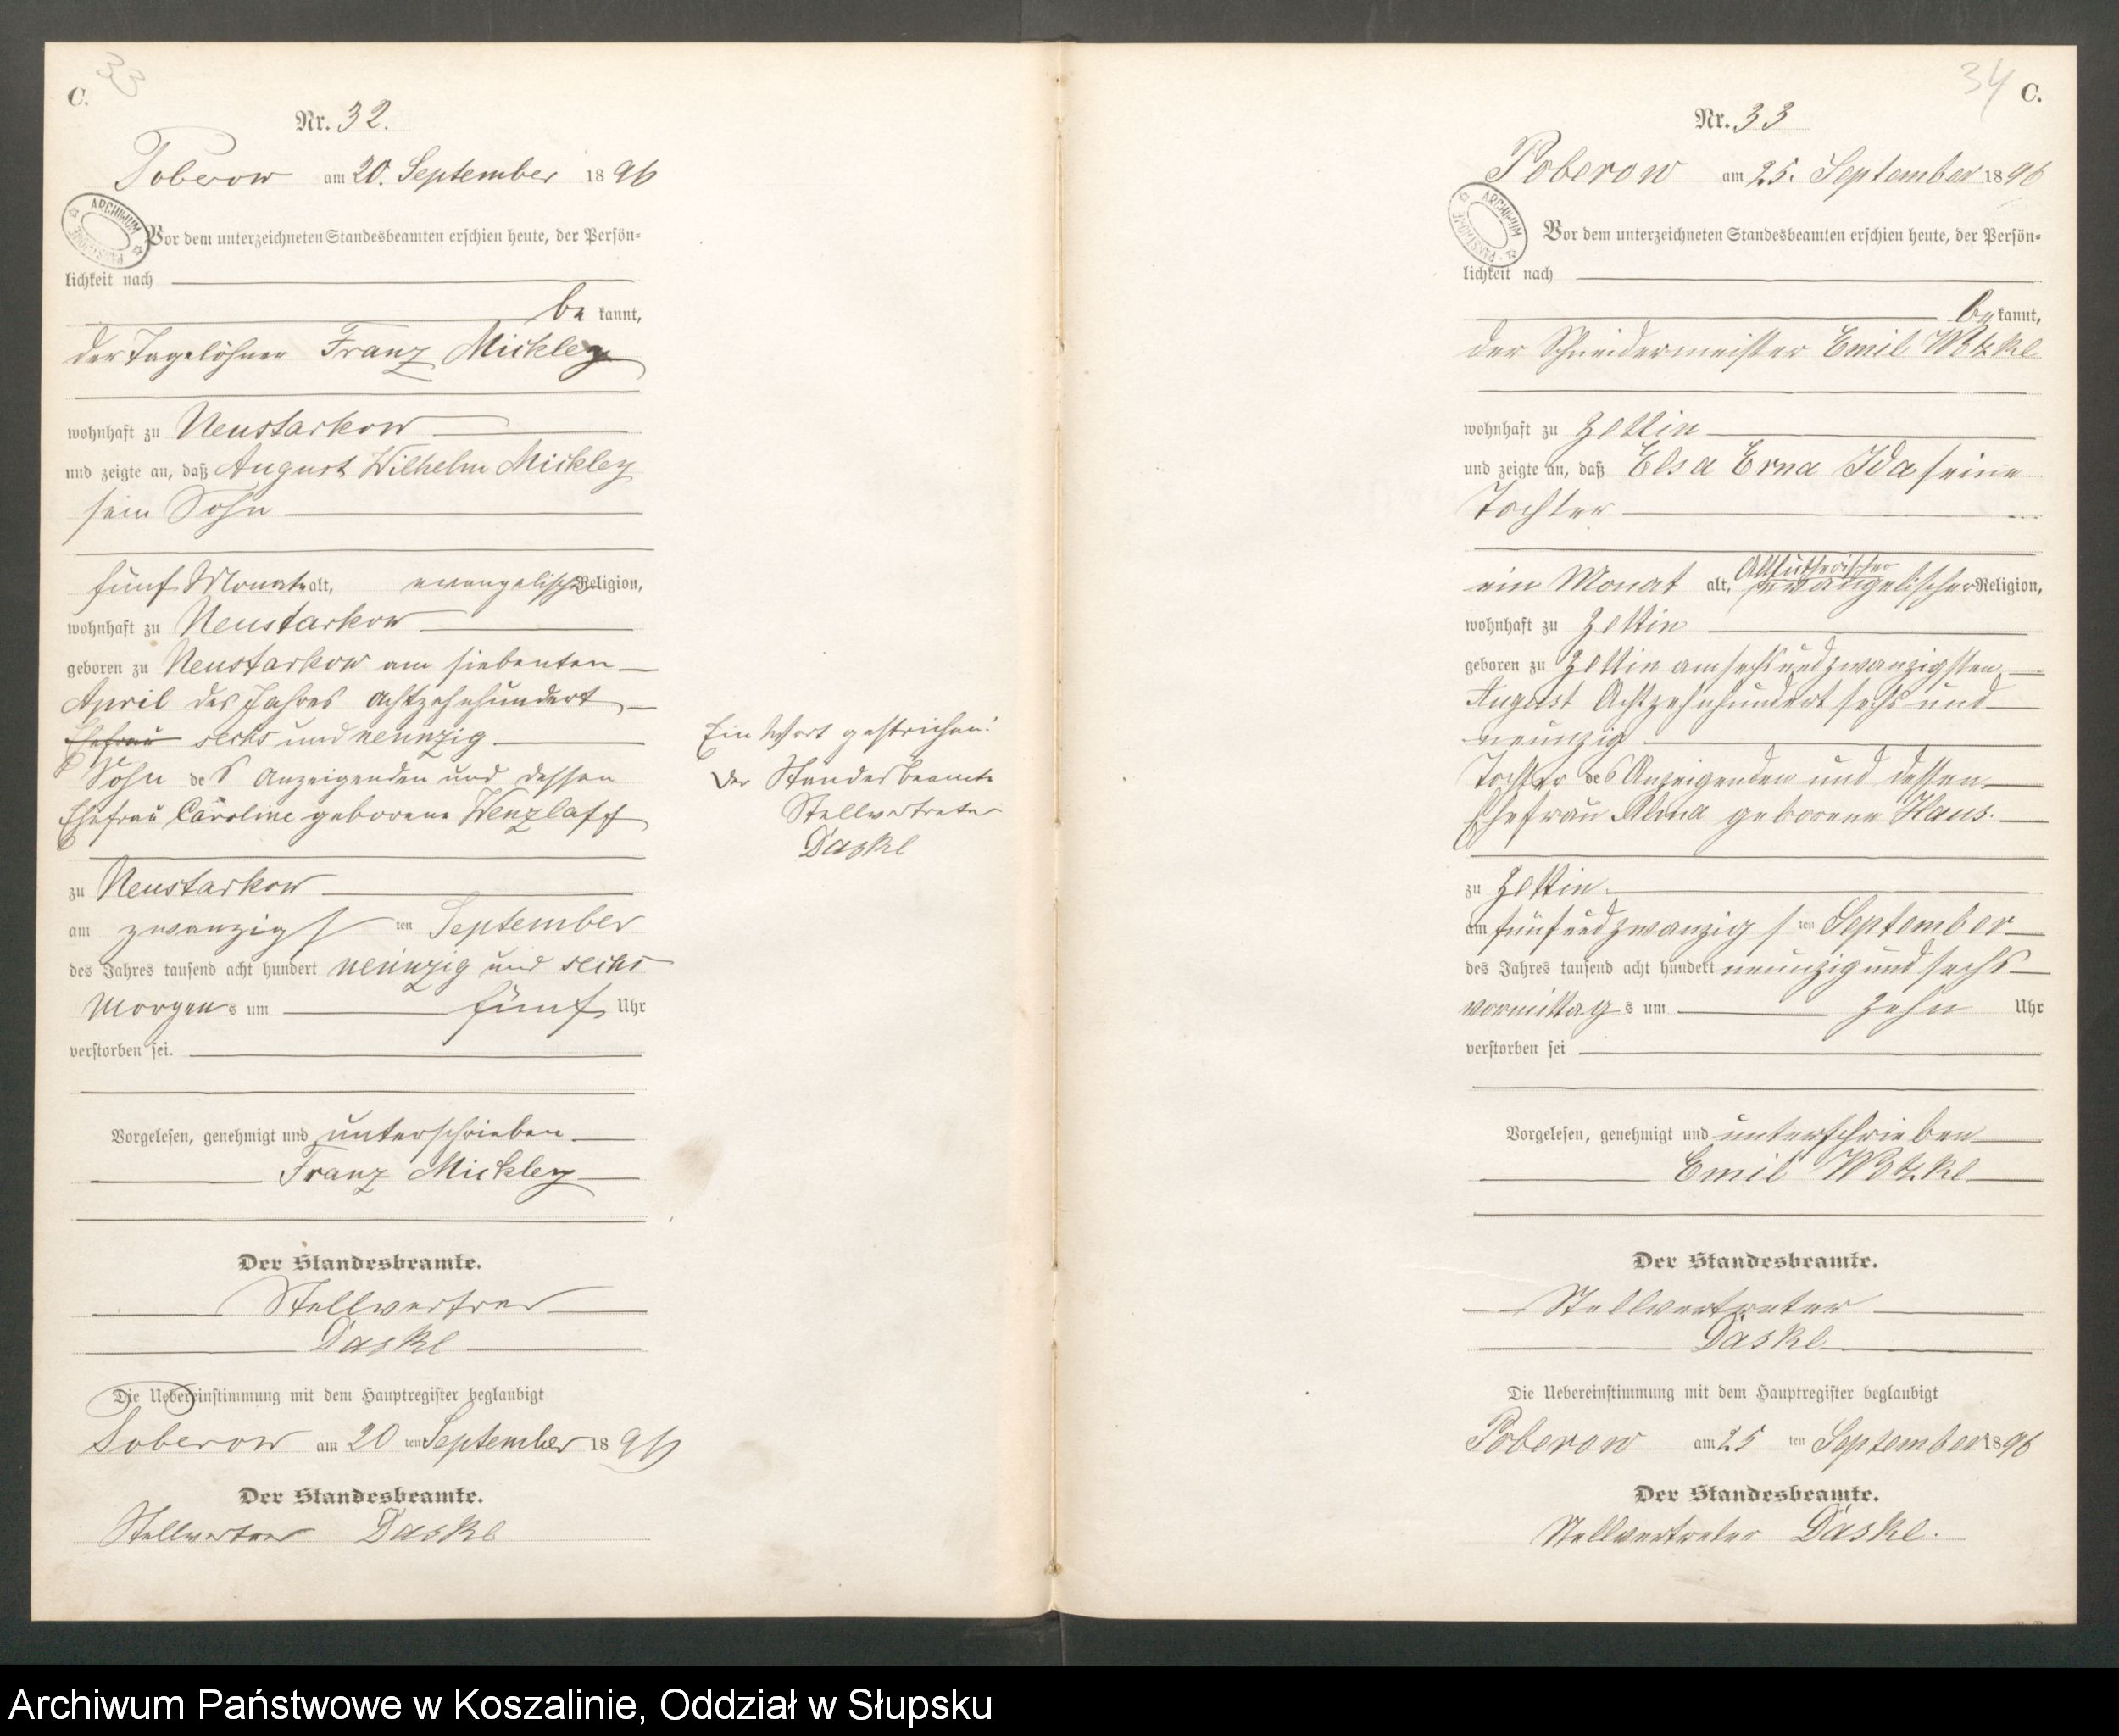 C.
33
Nr. 32.
Poberow am 20. September 1896
ARCHIWUM PAŃSTWOWE
Vor dem unterzeichneten Standesbeamten erschien heute, der Persön-
lichkeit nach
be kannt,
der Tagelöhner Franz Mickley
wohnhaft zu Neustarkow
und zeigte an, daß August Wilhelm Mickley
sein Sohn
fünf Monate alt, evangelischer Religion,
wohnhaft zu Neustarkow
geboren zu Neustarkow am siebenten
April des Jahres achtzehnhundert
Ehefrau sechs und neunzig
Sohn des Anzeigenden und dessen
Ehefrau Caroline geborene Wenzlaff
zu Neustarkow
am zwanzigsten September
des Jahres tausend acht hundert neunzig und sechs
Morgens um fünf Uhr
verstorben sei.
Vorgelesen, genehmigt und unterschrieben
Franz Mickley
Der Standesbeamte.
Däske
Die Uebereinstimmung mit dem Hauptregister beglaubigt
Poberow am 20 ten September 1896
Der Standesbeamte.
Däske
Ein Wort gestrichen!
Der Standesbeamte
Stellvertreter
Däske
34
C.
Nr. 33
Poberow am 25. September 1896
ARCHIWUM PAŃSTWOWE
Vor dem unterzeichneten Standesbeamten erschien heute, der Persön-
lichkeit nach
be kannt,
der Schneidermeister Emil
wohnhaft zu Zettin
und zeigte an, daß Elsa Erna Ida seine
Tochter
Altlutherischer
ein Monat alt, evangelischer Religion,
wohnhaft zu Zettin
geboren zu Zettin am sechsundzwanzigsten
August Achtzehnhundert sechs und
neunzig
Tochter des Anzeigenden und dessen
Ehefrau geborene Haus.
zu Zettin
am fünfundzwanzigsten September
des Jahres tausend acht hundert neunzig und sechs
vormittags um zehn Uhr
verstorben sei
Vorgelesen, genehmigt und unterschrieben
Emil
Der Standesbeamte.
Stellvertreter
Däske
Die Uebereinstimmung mit dem Hauptregister beglaubigt
Poberow am 25 ten September 1896
Der Standesbeamte.
Stellvertreter Däske.
Archiwum Państwowe w Koszalinie, Oddział w Słupsku